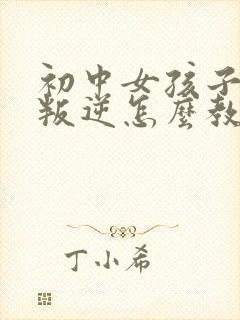 初中女孩子
叛逆怎麼教
丁小希